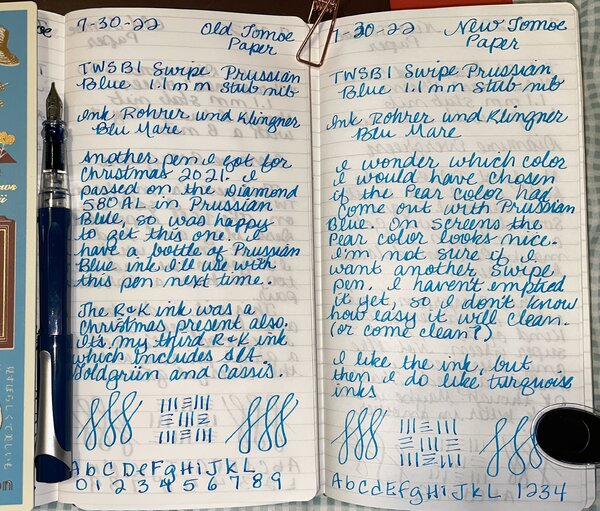 7-30-22 Old Tomoe
Paper
TWSBI Swipe Prussian
Blue 1.1 mm stub nib
Ink Rohrer und Klingner
Blu Mare
Another pen I got for
Christmas 2021. I
passed on the Diamond
580 AL in Prussian
Blue, so was happy
to get this one. I
have a bottle of Prussian
Blue ink I'll use with
this pen next time.
The R&K ink was a
Christmas present also.
Its my third R&K ink
which includes Alt
Goldgrün and Cassis.
AbCDeFgHiJKL
0 1 2 3 4 5 6 7 8 9
7-30-22 New Tomoe
Paper
TWSBI Swipe Prussian
Blue 1.1 mm stub nib
Ink Rohrer und Klingner
Blu Mare
I wonder which color
I would have chosen
if the Pear color had
come out with Prussian
Blue. On screens the
Pear color looks nice.
I'm not sure if I
want another Swipe
pen. I haven't emptied
it yet, so I don't know
how easy it will clean.
(or come clean?)
I like the ink, but
then I do like turquoise
inks
AbCdEfgHiJKL 1234